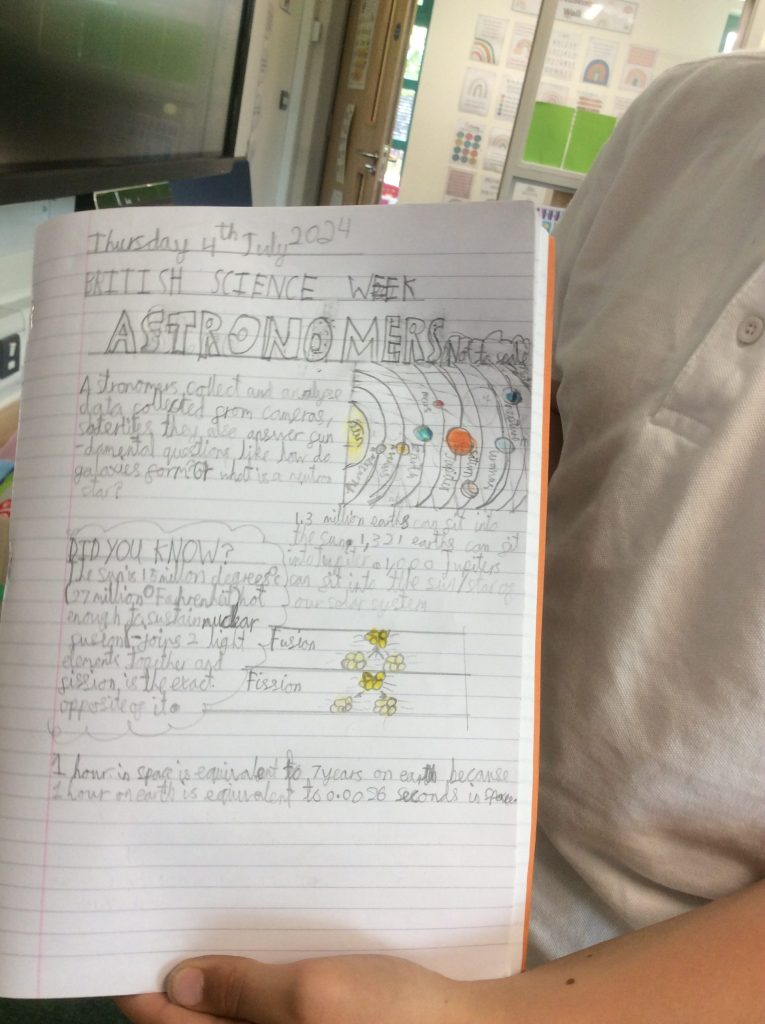 Thursday 4th July 2024
BRITISH SCIENCE WEEK
ASTRONOMERS
Not to scale
Astronomers collect and analyse
data collected from cameras,
saterlites they also answer fun
-damental questions like how do
galaxies form? or what is a neutron
star?
Sun
Venus
Earth
mars
Jupiter
Saturn
uranus
1,3 million earths can sit into
the sun. 1,321 earths can sit
into Jupiter. 1,000 Jupiters
can sit into the sun/star of
our solar system
DID YOU KNOW?
The sun is 15 million degrees°c
(27 million° Fahrenhait) hot
enough to sustain nuclear
fusion - joins 2 light
elements together and
fission is the exact
opposite of it.
Fusion
Fission
1 hour in space is equivalent to 7 years on earth because
1 hour on earth is equivalent to 0.0026 seconds in space.